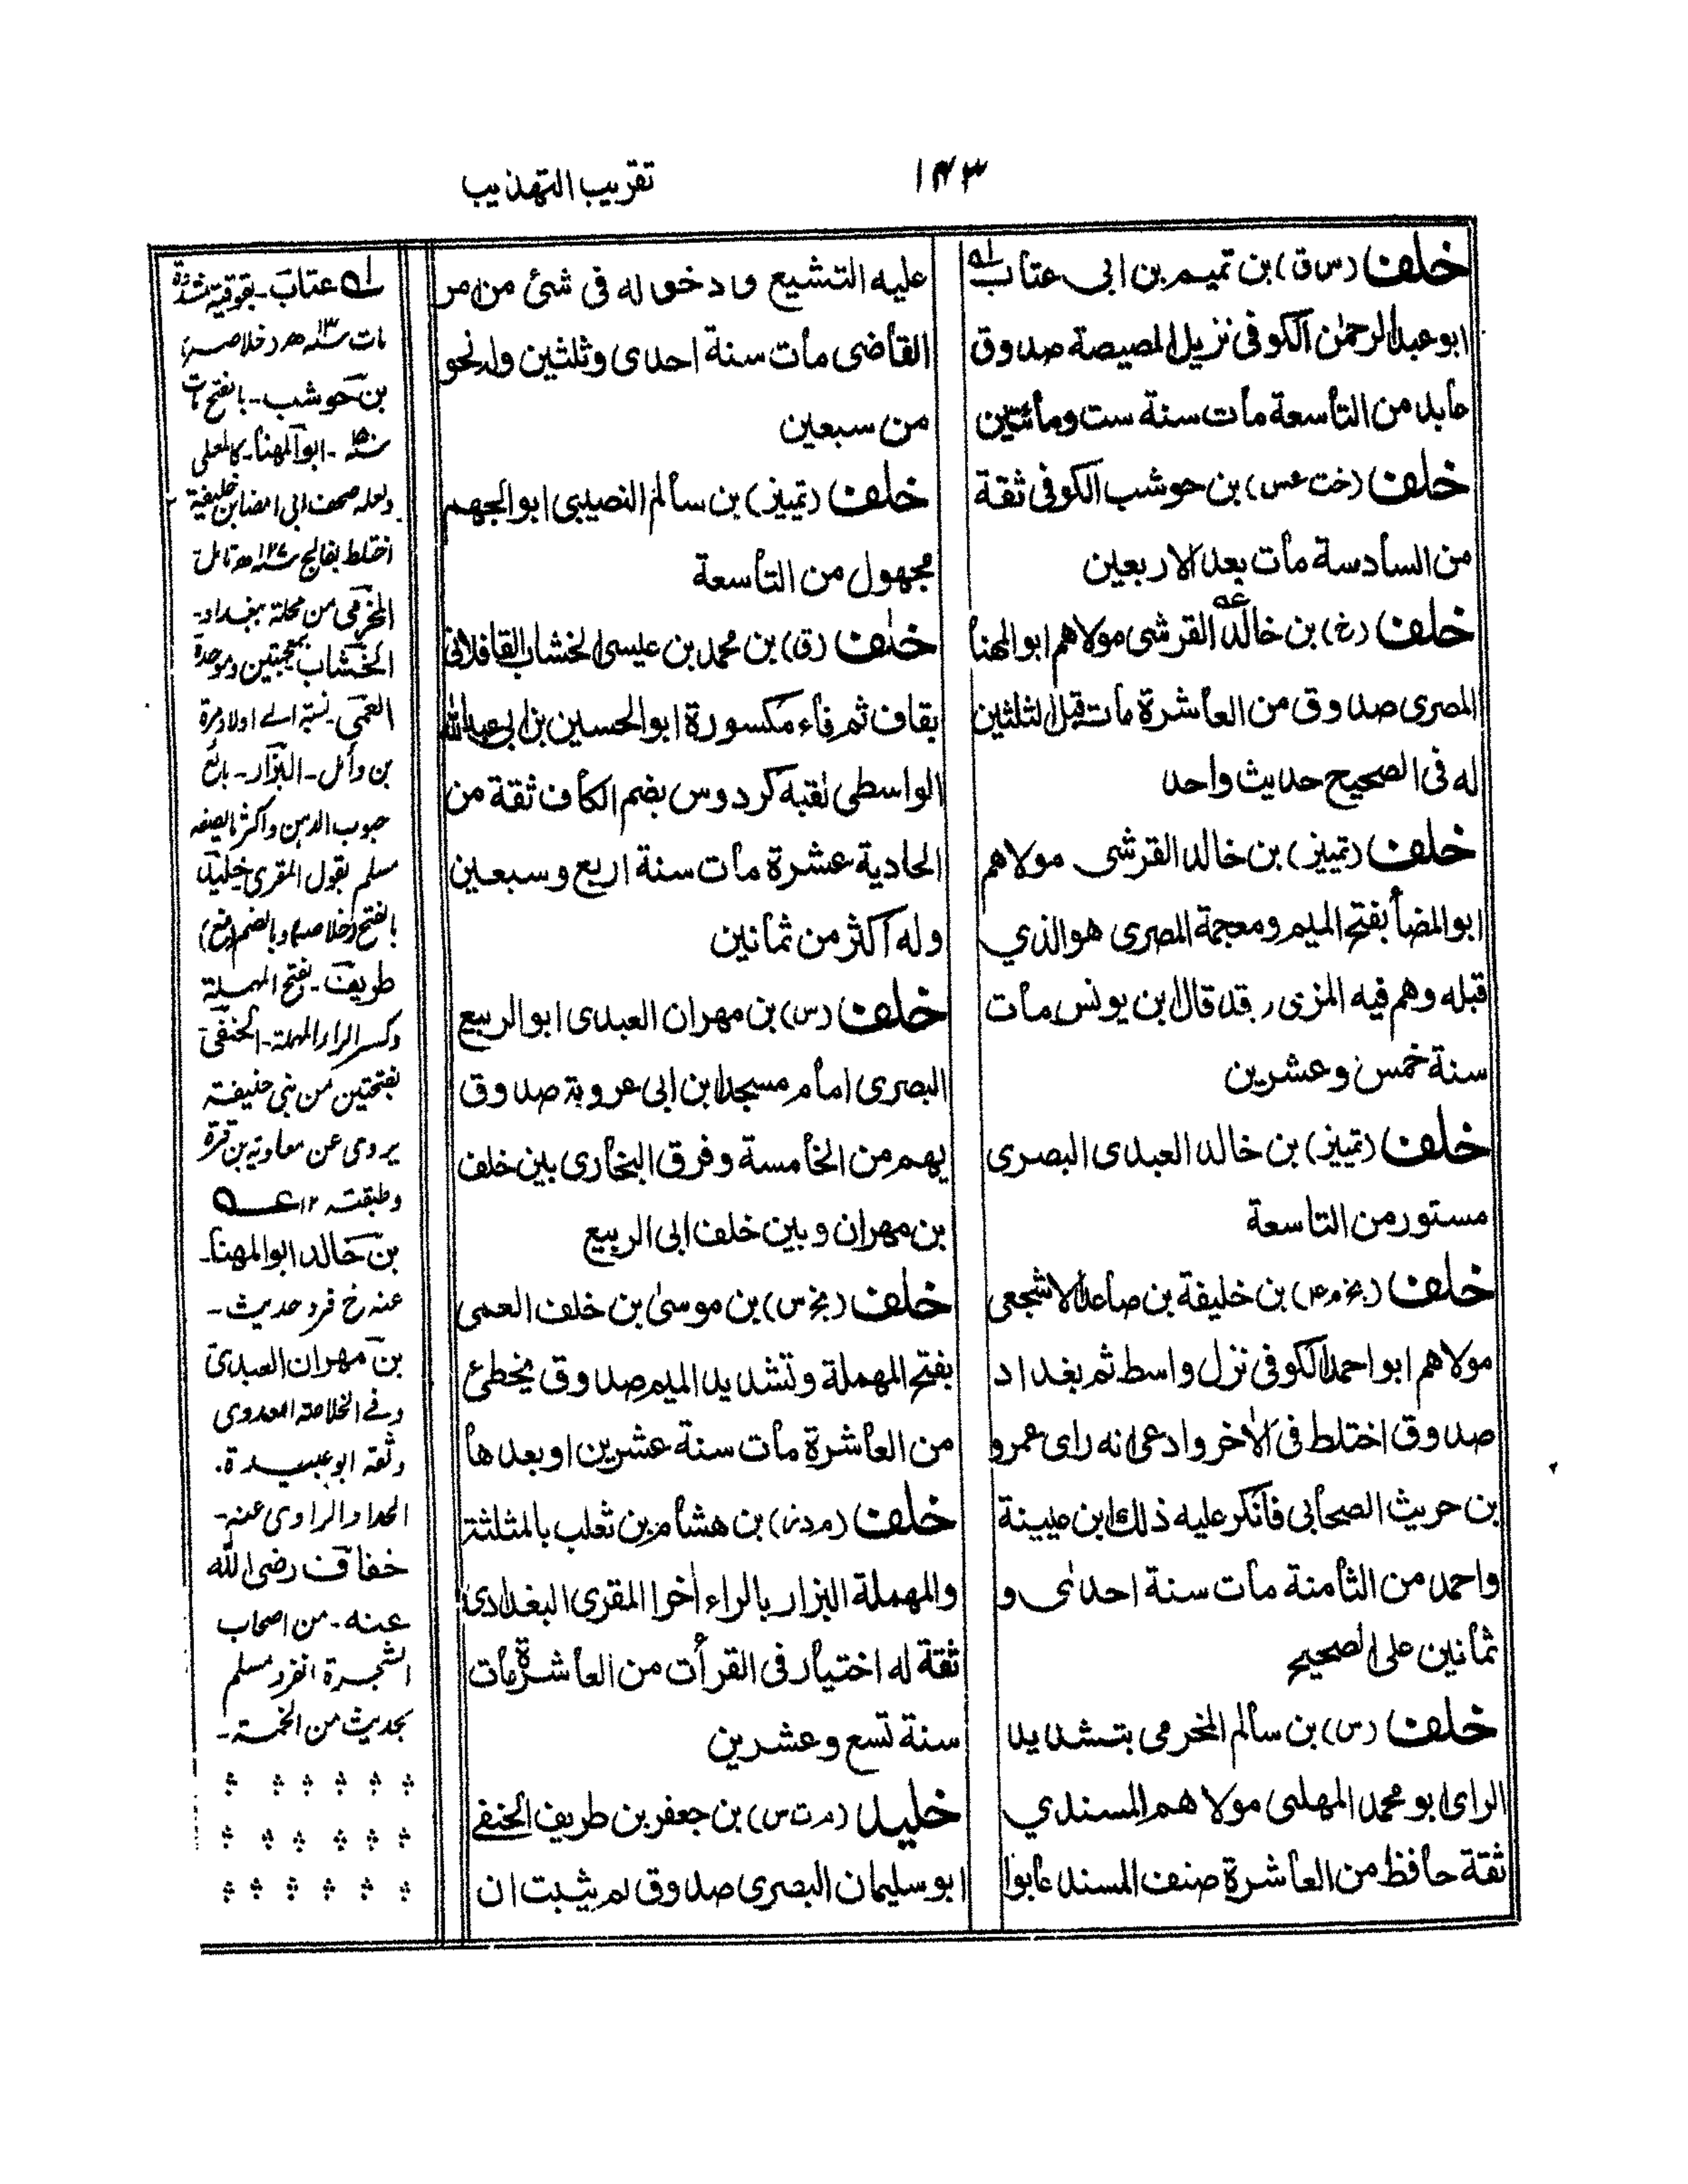 ١٤٣
تقريب التهذيب
خلف (س ق) بن تميم بن ابى عتاب
ابو عبد الرحمٰن الكوفى نزيل المصيصة صدوق
عابد من التاسعة مات سنة ست ومائتين
خلف (خت عس) بن حوشب الكوفى ثقة
من السادسة مات بعد الاربعين
خلف (خ) بن خالد القرشى مولاهم ابو المهنا
المصرى صدوق من العاشرة مات قبل الثلثين
له فى الصحيح حديث واحد
خلف (تمييز) بن خالد القرشى مولاهم
ابو المضا بفتح الميم ومعجمة المصرى هو الذي
قبله وهم فيه المزى وقد قال ابن يونس مات
سنة خمس وعشرين
خلف (تمييز) بن خالد العبدى البصرى
مستور من التاسعة
خلف (بخ م ٤) بن خليفة بن صاعد الاشجعى
مولاهم ابو احمد الكوفى نزل واسط ثم بغداد
صدوق اختلط فى الاخر وادعى انه راى عمرو
بن حريث الصحابى فانكر عليه ذلك ابن عيينة
واحمد من الثامنة مات سنة احدى و
ثمانين على الصحيح
خلف (س) بن سالم المخرمى بتشديد
الراى ابو محمد المهلبى مولاهم المسندي
ثقة حافظ من العاشرة صنف المسند عابوا
عليه التشيع ودخوله فى شئ من امر
القاضى مات سنة احدى وثلثين وله نحو
من سبعين
خلف (تمييز) بن سالم النصيبى ابو الجهم
مجهول من التاسعة
خلف (ق) بن محمد بن عيسى الخشاب القافلانى
بقاف ثم فاء مكسورة ابو الحسين بن ابى عبد الله
الواسطى لقبه كردوس بضم الكاف ثقة من
الحادية عشرة مات سنة اربع وسبعين
وله اكثر من ثمانين
خلف (س) بن مهران العبدى ابو الربيع
البصرى امام مسجد ابن ابى عروبة صدوق
يهم من الخامسة وفرق البخارى بين خلف
بن مهران وبين خلف ابى الربيع
خلف (بخ س) بن موسىٰ بن خلف العمى
بفتح المهملة وتشديد الميم صدوق يخطئ
من العاشرة مات سنة عشرين او بعدها
خلف (م د ز) بن هشام بن ثعلب بالمثلثة
والمهملة البزار بالراء اخرا المقرى البغدادى
ثقة له اختيار فى القرأت من العاشرة مات
سنة تسع وعشرين
خليد (م ت س) بن جعفر بن طريف الحنفى
ابو سليمان البصرى صدوق لم يثبت ان
له عتاب - بفوقية مشددة
مات سنة ٢١٣ هـ (خلاصه)
بن حوشب - بالفتح مات
ابو المهنا - كالمعلى
ولعله صحف ابى المضا بن خليفة
اختلط بفالج
المخرمى من محلة ببغداد -
الخشاب بمعجمتين وموحدة
العمى - نسبة الى اولاد مرة
بن وائل - البزار - بائع
حبوب الدهن واكثر ما يصفه
مسلم بقول المقرى خليد
بالفتح (خلاصه) وبالضم (مغ)
طريف - بفتح المهملة
وكسر الراء المهملة - الحنفى
بفتحتين من بنى حنيفة
يروى عن معاوية بن قرة
وطبقته ١٢ عـه
بن خالد ابو المهنا -
عنه خ فرد حديث -
بن مهران العبدى
وفى الخلاصة العدوى
وثقه ابو عبيدة .
الحداد الراوى عنه -
خفاف رضى الله
عنه - من اصحاب
الشجرة انفرد مسلم
بحديث من الخمسة -